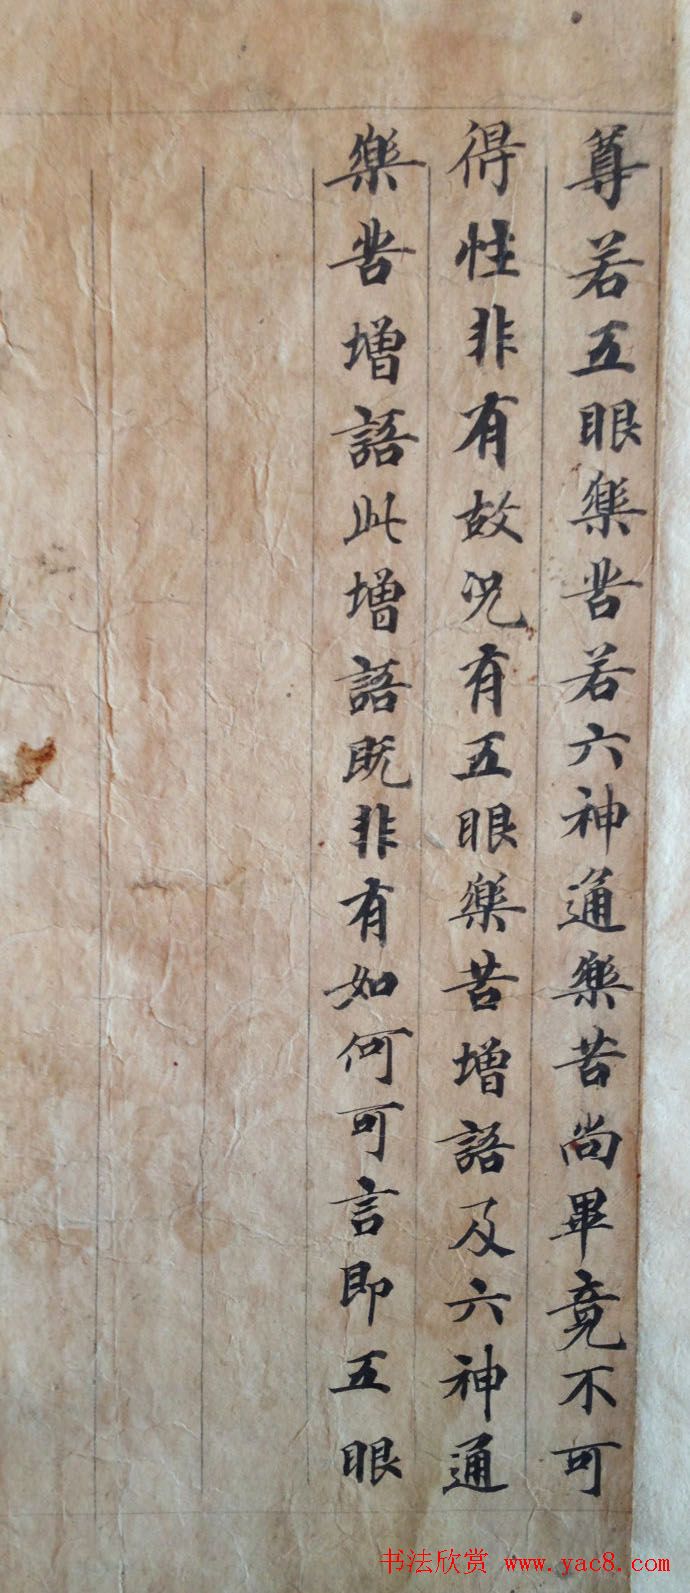 尊若五眼樂苦若六神通樂苦尚畢竟不可
得性非有故况有五眼樂苦增語及六神通
樂苦增語此增語既非有如何可言即五眼
书法欣赏 www.yac8.com